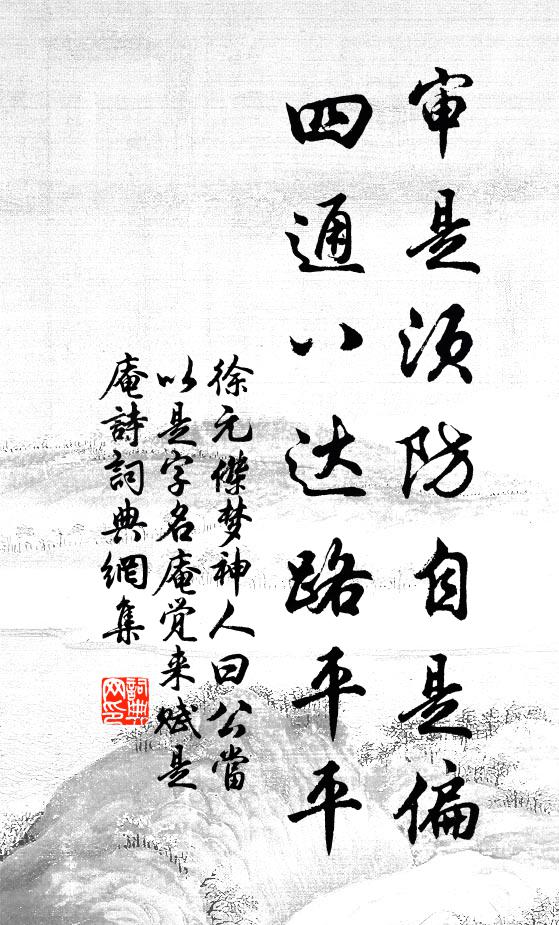 审是须防自是偏
四通八达路平平
徐元傑梦神人曰公當
以是字名庵觉来赋是
庵詩詞典網集
詞典
网印